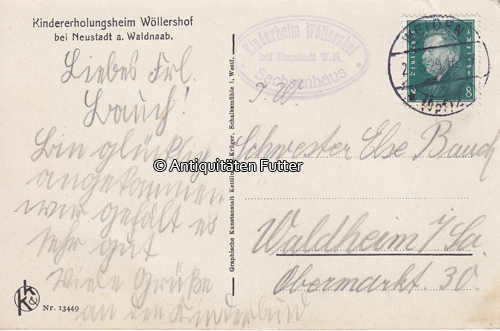 Kindererholungsheim Wöllershof
bei Neustadt a. Waldnaab.
Liebes Frl.
Bauch!
Bin glücklich
angekommen
mir gefält es
sehr gut
Viele Grüße
an den Kinderland
Nr. 13449
Graphische Kunstanstalt Kettling & Krüger, Schalksmühle i. Westf.
Kinderheim Wöllershof
bei Neustadt W.N.
Sachsenhaus
8
Schwester Else Bauch
Waldheim i/Sa.
Obermarkt 30.
© Antiquitäten Futter